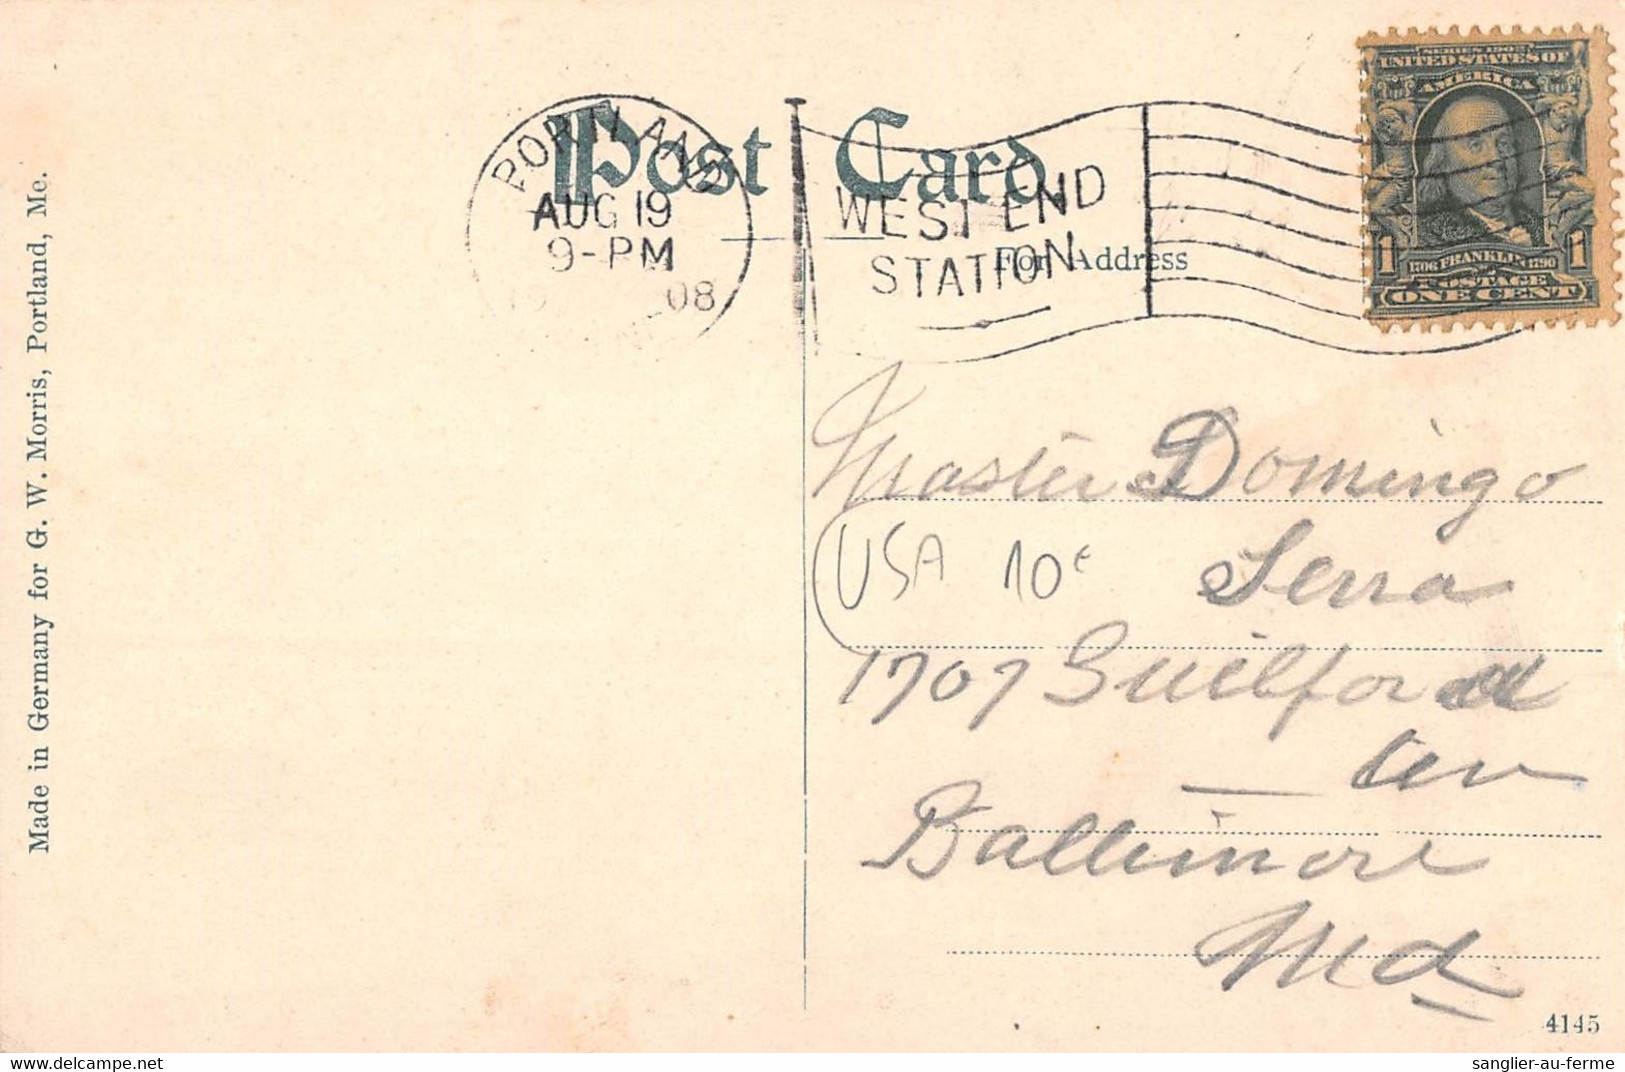 Post Card
PORTLAND
AUG 19
9-PM
08
WEST END
STATION
For Address
SERIES 1902
UNITED STATES OF
AMERICA
1 1
1706 FRANKLIN 1790
POSTAGE
ONE CENT
Made in Germany for G. W. Morris, Portland, Me.
Master Domingo
USA 10€ Serra
1707 Guilford
Av
Baltimore
Md
4145
sanglier-au-ferme